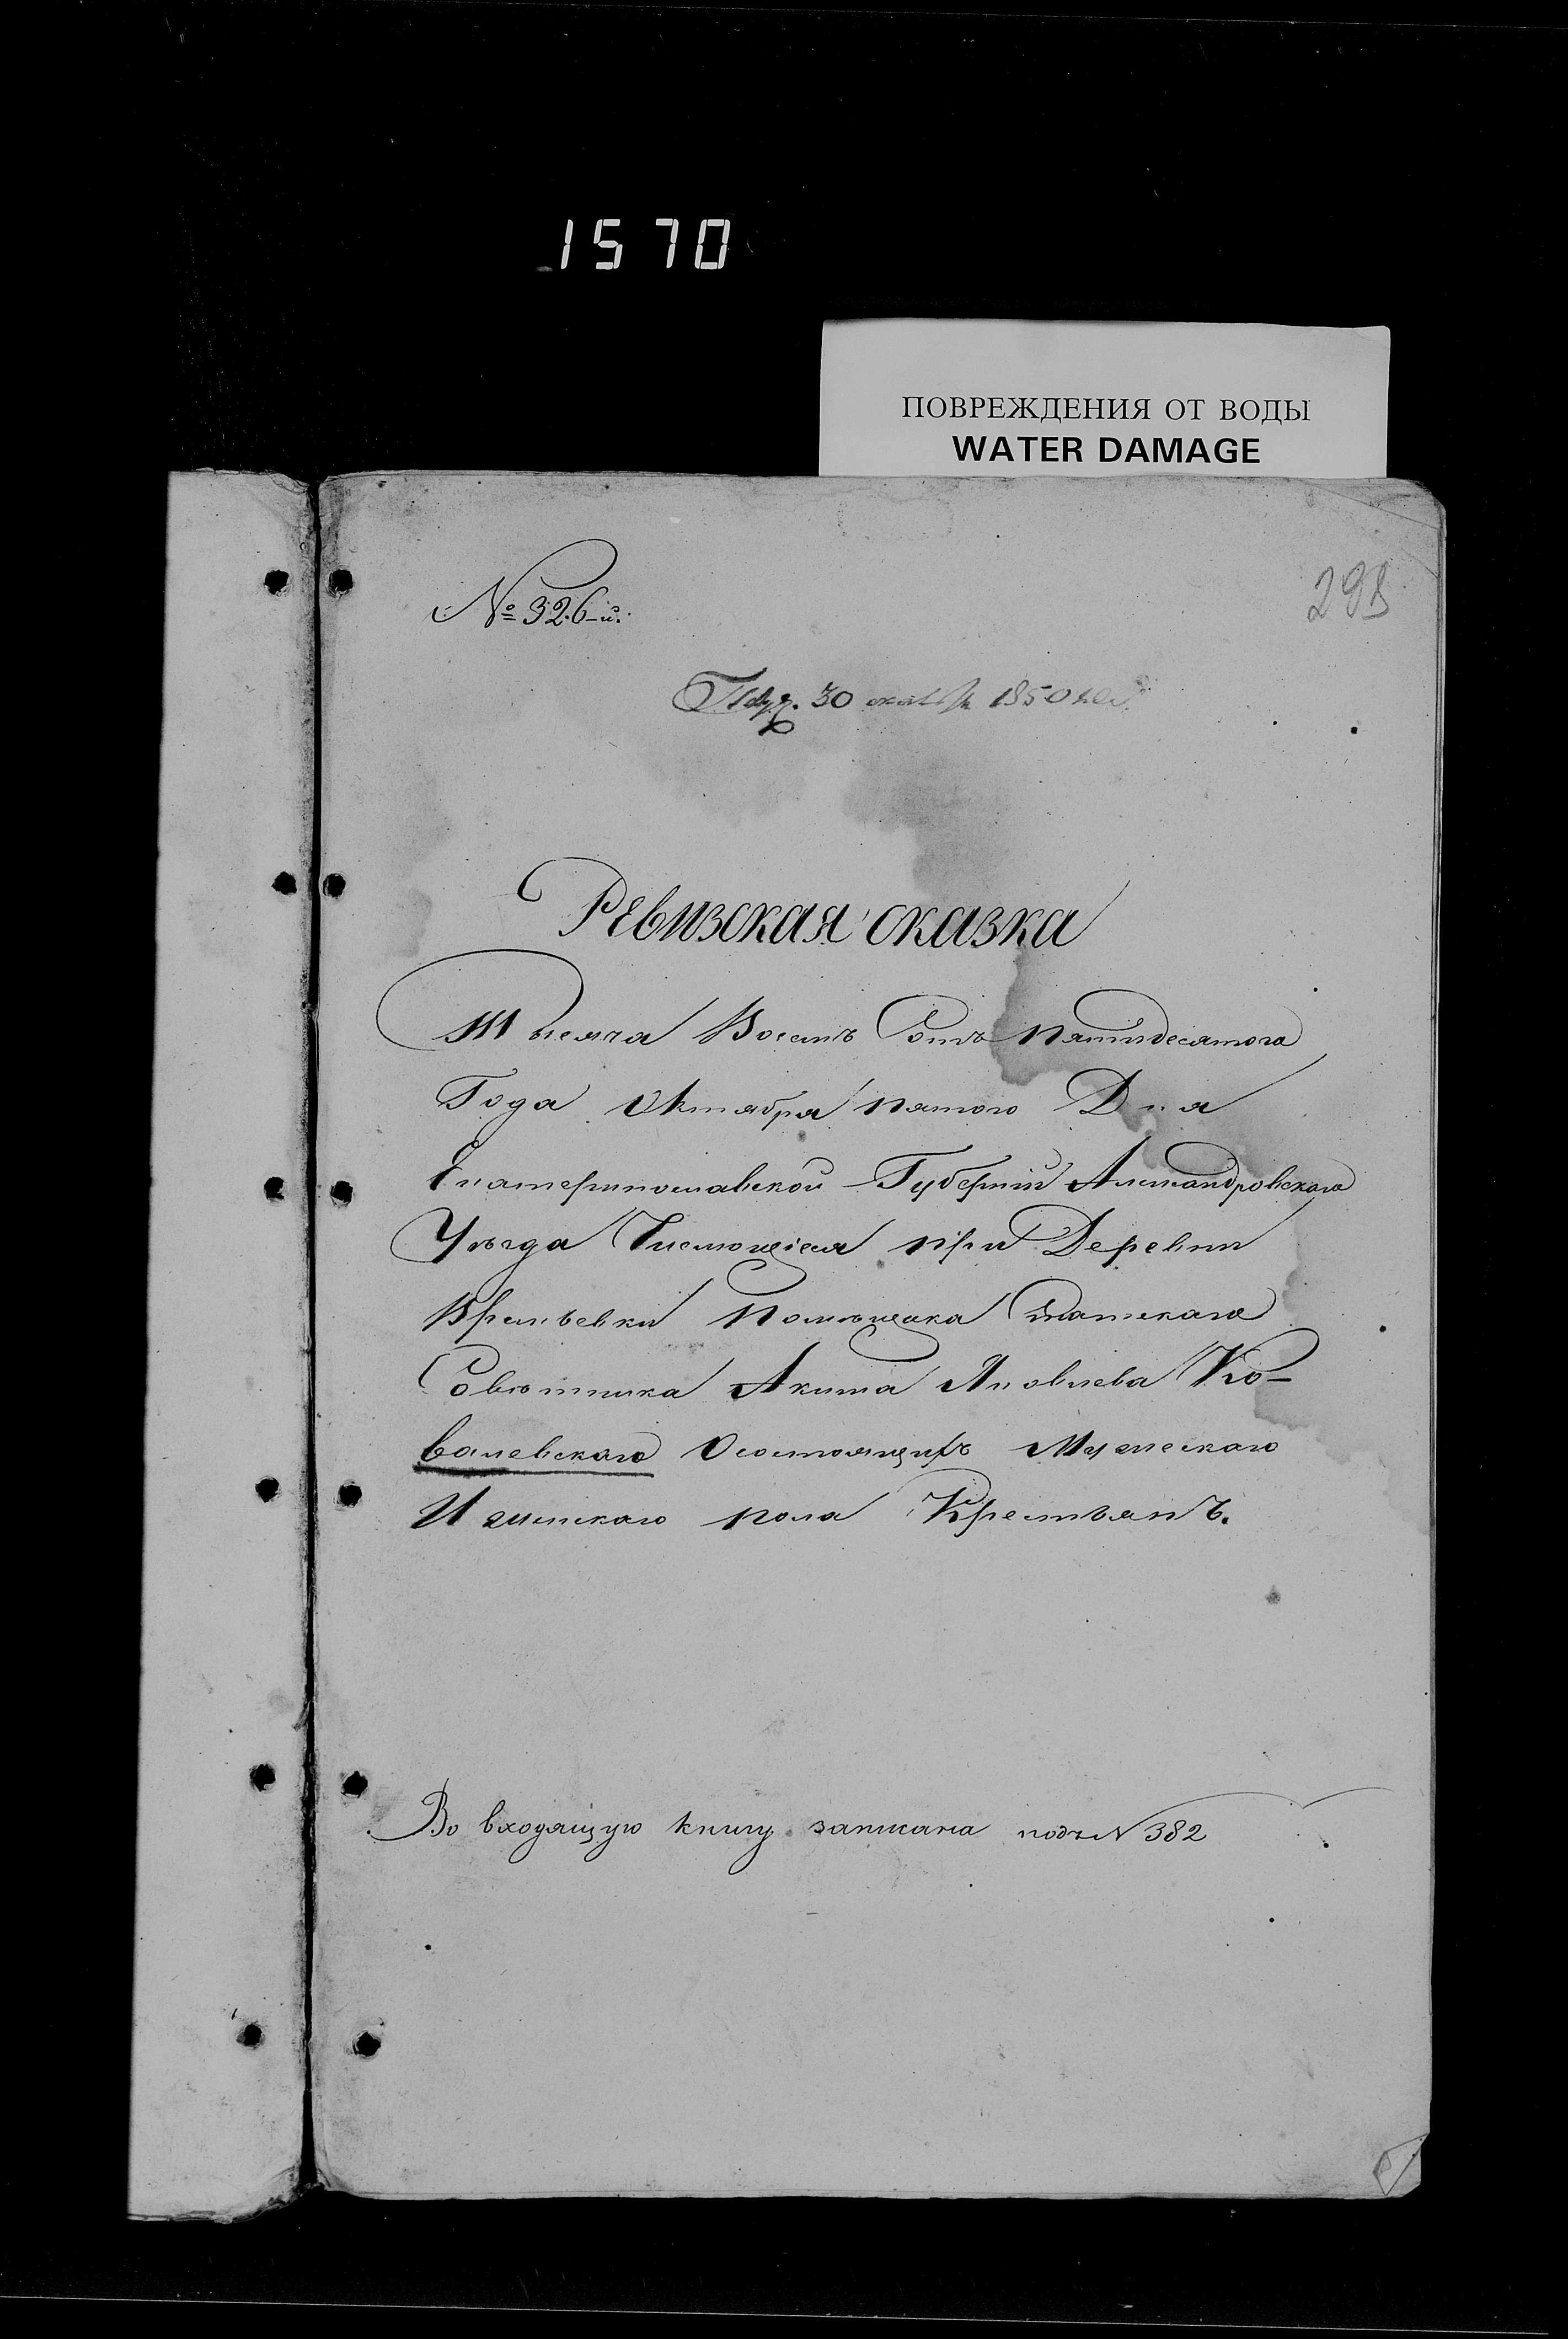 1570
ПОВРЕЖДЕНИЯ ОТ ВОДЫ
WATER DAMAGE
№ 326-й.
30 октября 1850 года
Ревизская сказка
Тысяча Восемь Сотъ пятидесятого
Года Октября пятого Дня
Екатеринославской Губерніи Александровского
Уѣзда Числющіеся при Деревни
помѣщика Статскаго
Совѣтника Акима Яковлева Ко-
валевскаго Осостоящихъ Мужескаго
И женскаго пола Крестьянъ.
Во входящую книгу записана подъ N 382